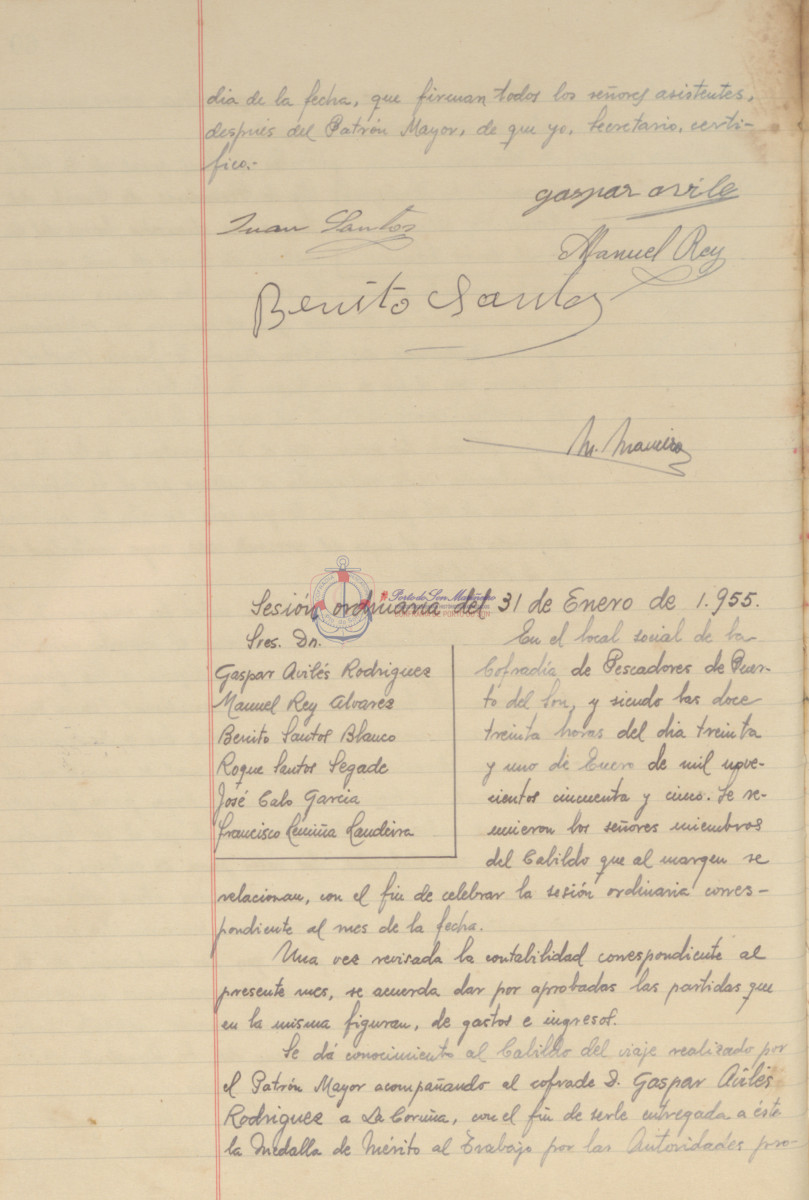 dia de la fecha, que firman todos los señores asistentes,
después del Patrón Mayor, de que yo, Secretario, certi-
fico.-
gaspar avile
Juan Santos
Manuel Rey
Benito Santos
M. Maneiro
Sesión ordinaria del 31 de Enero de 1.955.
Sres. Dn.
Gaspar Avilés Rodriguez
Manuel Rey Alvarez
Benito Santos Blanco
Roque Santos Segade
José Calo Garcia
Francisco
En el local social de la
Cofradía de Pescadores de Puer-
to del Son, y siendo las doce
treinta horas del dia treinta
y uno de Enero de mil nove-
cientos cincuenta y cinco. Se re-
unieron los señores miembros
del Cabildo que al margen se
relacionan, con el fin de celebrar la sesión ordinaria corres-
pondiente al mes de la fecha.
Una vez revisada la contabilidad correspondiente al
presente mes, se acuerda dar por aprobadas las partidas que
en la misma figuran, de gastos e ingresos.
Se dá conocimiento al Cabildo del viaje realizado por
el Patrón Mayor acompañando al cofrade D. Gaspar Avilés
Rodriguez a La Coruña, con el fin de serle entregada a éste
la Medalla de Mérito al Trabajo por las Autoridades pro-